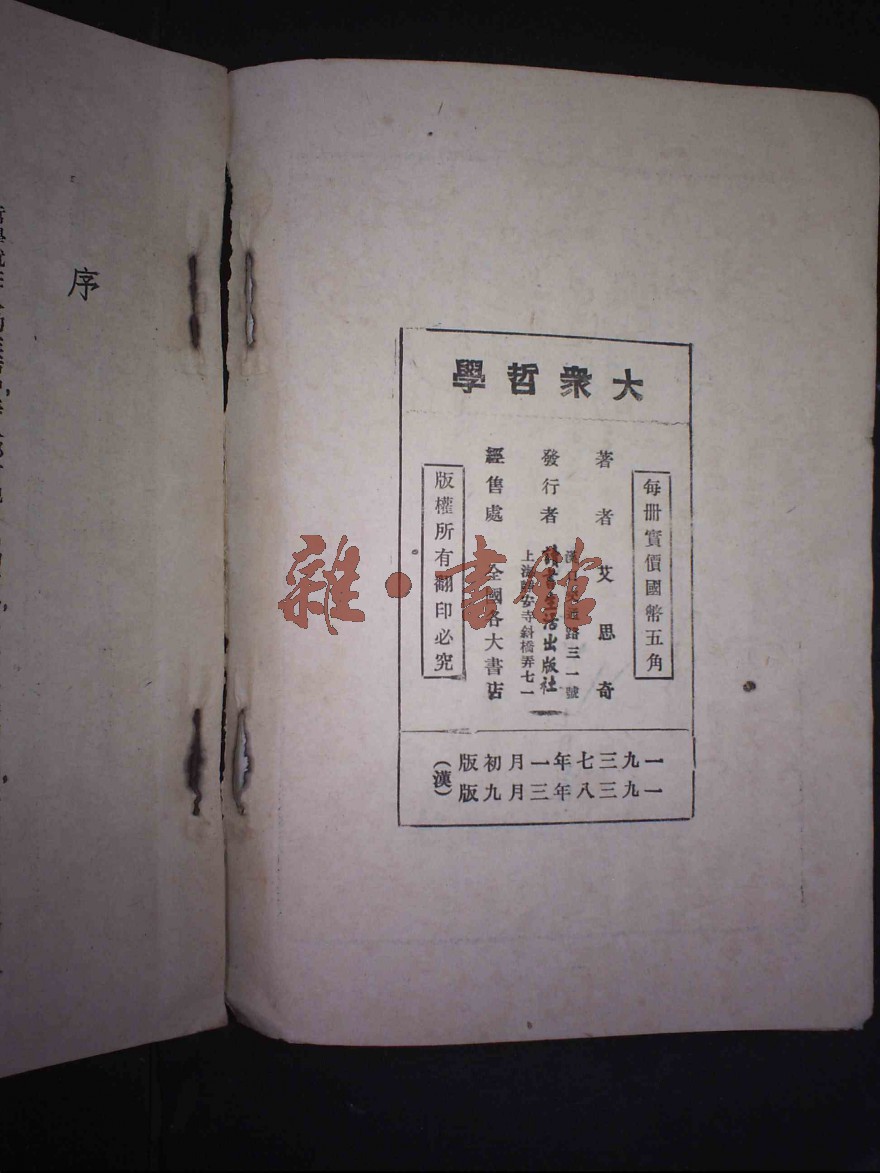 大衆哲學
每册實價國幣五角
著者 艾思奇
發行者 讀書生活出版社
路三一號
上海靜安寺斜橋弄七一
經售處 全國各大書店
版權所有翻印必究
一九三七年一月初版
一九三八年三月九版(漢)
序
雜·書館